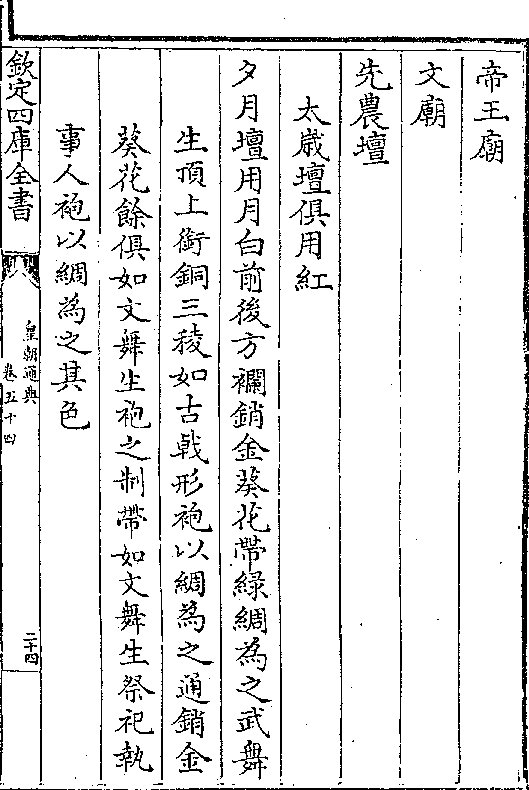 帝王廟
文廟
先農壇
太歳壇俱用紅
夕月壇用月白前後方襴銷金葵花帶綠綢為之武舞
生頂上銜銅三稜如古戟形袍以綢為之通銷金
葵花餘俱如文舞生袍之制帶如文舞生祭祀執
事人袍以綢為之其色
欽定四庫全書
皇朝通典
卷五十四
二十四